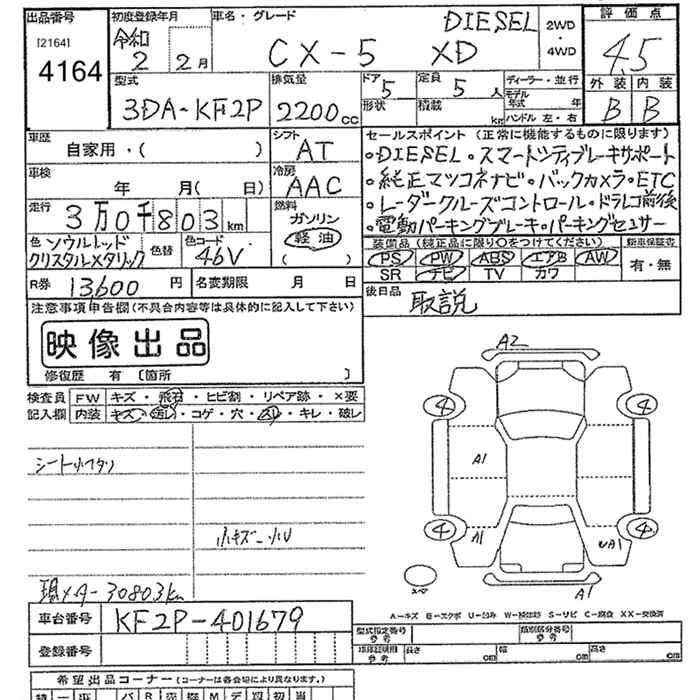 出品番号 初度登録年月 車名・グレード DIESEL 2WD・4WD 評価点
[2164] 4164 令和 2 2月 CX-5 XD 4.5
型式 排気量 ドア 5 定員 5人 ディーラー・並行 外装 内装
3DA-KF2P 2200cc 形状 積載 kg モデル年式 年 ハンドル 左・右 B B
車歴 シフト セールスポイント (正常に機能するものに限ります)
自家用・( ) AT ・DIESEL・スマートシティブレーキサポート
車検 冷房 ・純正マツコネナビ・バックカメラ・ETC
年 月( 日) AAC ・レーダークルーズコントロール・ドラレコ前後
走行 3万0千803km 燃料 ガソリン ・電動パーキングブレーキ・パーキングセンサー
色 ソウルレッド 色替 色コード 軽油 装備品 (純正品に限り○をつけてください) 新車保証書
クリスタルメタリック 46V ( ) PS PW ABS エアB AW 有・無
SR ナビ TV カワ
R券 13,600 名変期限 月 日 後日品 取説
注意事項申告欄(不具合内容等は具体的に記入して下さい)
映像出品
修復歴 有 〔箇所 〕
検査員 FW キズ・飛石・ヒビ割・リペア跡・×要
記入欄 内装 キズ・汚レ・コゲ・穴・スリ・キレ・破レ
A2
4 4
シート小ヘタリ A1
小キズ・小U 4 A1 UA1 4
スペア A1
現メター30803km
A-キズ E-エクボ U-凹み W-補修跡 S-サビ C-腐食 XX-交換済
車台番号 KF2P-401679 型式指定番号 参考 類別区分番号 参考
登録番号 車庫証明用 参考 長さ cm 幅 cm 高さ cm
希望出品コーナー (コーナーは各会場により異なります。)